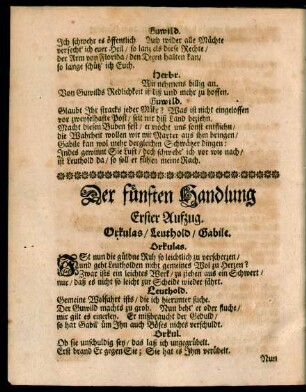 Guwild.
Ich schwehr es öffentlich Auch wider alle Mächte
verfecht' ich euer Heil / so lang als diese Rechte /
der Arm von Floriba / den Degen halten kan /
so lange schütz' ich Euch.
Herbr.
Wir nehmens billig an.
Von Guwilds Redlichkeit ist diß und mehr zu hoffen.
Guwild.
Glaubt Ihr stracks jeder Mähr? Was ist nicht eingeloffen
vor zweyfelhafte Post / seit wir diß Land beziehn.
Macht diesen Buben fest / er möcht uns sonst entfliehn /
die Wahrheit wollen wir mit Marter aus ihm bringen /
Gabile kan wol mehr dergleichen Schwätzer dingen:
Indes gewinnt Sie Lust / doch schwehr' ich vor wie nach /
ist Leuthold da / so soll er fühlen meine Rach.
Der fünften Handlung
Erster Aufzug.
Orkulas / Leuthold / Gabile.
Orkulas.
Ist nun die güldne Ruh so leichtlich zu verscherzen /
und geht Leutholden nicht gemeines Wol zu Herzen?
Zwar ists ein leichtes Werk / zu ziehen aus ein Schwert /
nur / daß es nicht so leicht zur Scheide wieder fährt.
Leuthold.
Gemeine Wolfahrt ists / die ich hierunter suche.
Der Guwild machts zu grob. Nun beht' er oder fluche /
mir gilt es einerley. Er mißbraucht der Gedult /
so hat Gabil' üm Ihn auch Böses nichts verschuldt.
Orkul.
Ob sie unschuldig sey / das laß ich ungegrübelt.
Erst brand Er gegen Sie; Sie hat es Ihm verübelt.
Nun